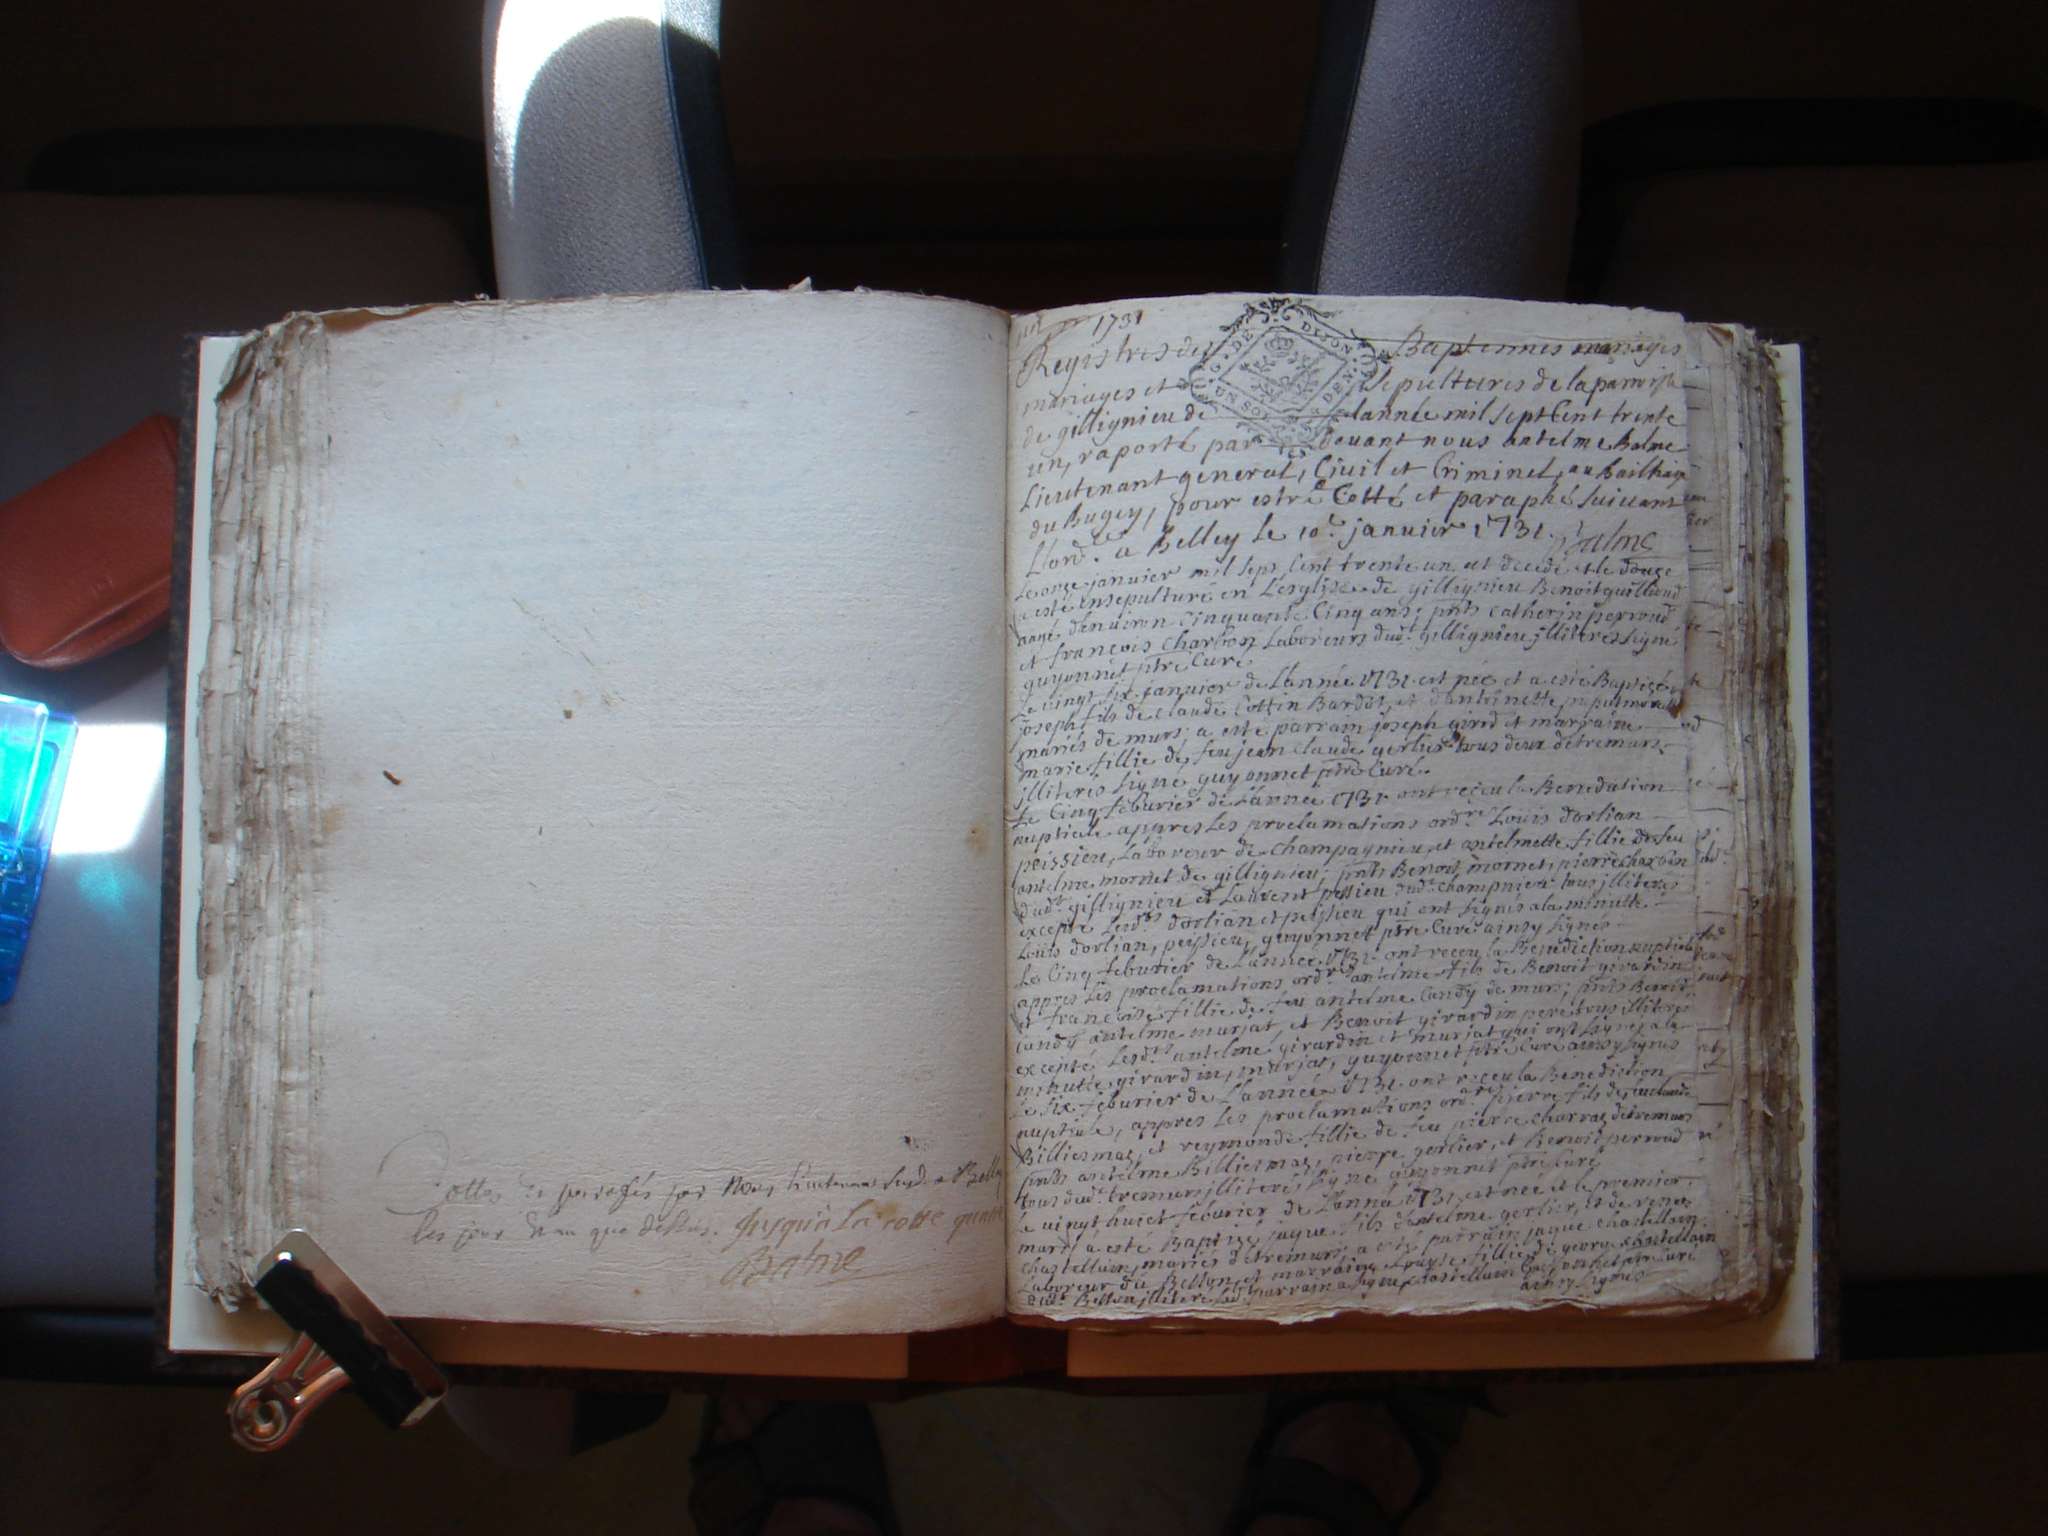 Cottes et paraphés par Nous Lieutenant susd. a Belley
les jour et an que dessus. Jusqu'à La cotte quatre
Balme
1731
G. DE DIJON
UN SOL DEN.
Registres des Baptemmes mariages
mariages et sepultures de la parroisse
de gillignieu de lannée mil sept Cent trente
un, raporté par devant nous antelme Balme
Lieutenant general, Civil et Criminel, au bailliage
du Bugey, pour estre Cotté et paraphé suivant
L'ord.ce a Belley le 10.e janvier 1731. Balme
Le onze janvier mil sept Cent trente un est decedé et le douze
a esté ensepulturé en L'esglise de gillignieu Benoit guilliend
aagé denviron Cinquante Cinq ans; pnts catherin perroud
et françois Charbon Laboreurs dud.t gillignieu illiterés signé
guyonnet ptre Curé
Le vingt six janvier de Lannée 1731 est née et a esté Baptizé
joseph fils de claude Cottin Bardot, et dantoinette
mariés de murs; a esté parrain joseph et marraine
marie fillie de feu jean claude gerlier tous deux detremurs
illiterés signé guyonnet ptre Curé.
Le Cinq feburier de Lannée 1731 ont reçeu la Benediction
nuptiale appres les proclamations ord.res Louis dorlian
peissieu, Laboreur de Champagnieu, et antelmette fillie de feu
antelme mornet de gillignieu; pnts Benoit mornet, pierre charbon
dud.t gillignieu et Laurent peissieu dud.t champnieu tous illiterés
excepté Lesd.ts dorlian et peissieu qui ont signés a la minutte.
Louis dorlian, peissieu, guyonnet ptre Curé ainsy signés
Le Cinq feburier de Lannée 1731 ont receu la Benediction nuptiale
appres les proclamations ord.res antelme fils de Benoit girardin
et françoise fillie de feu antelme Candy de murs; pnts Benoit
Candy antelme murjat, et Benoit girardin pere tous illiterés
excepté Lesd.ts antelme girardin et murjat qui ont signés a la
minutte girardin, murjat, guyonnet ptre Curé ainsy signés
Le six feburier de Lannée 1731 ont receu la Benediction
nuptiale, appres les proclamations ord.res pierre fils de feu claude
Billiesmaz, et reymonde fillie de feu pierre charraz detremurs
pnts antelme Billiesmaz, pierre gerlier, et Benoit perroud
tous dud.t tremurs illiterés signé guyonnet ptre Curé
Le vingt huict feburier de Lannée 1731 est née et le premier
mars a esté Baptizé jaque fils dantelme gerlier, et de
chastellain, mariés detremurs a esté parrain jaque chastellain
Laboreur du Bellon, et marraine Louyse fillie de george chastellain
dud.t Bellon illiteré led.t parrain a signé chastellain guyonnet ptre Curé
ainsy signés